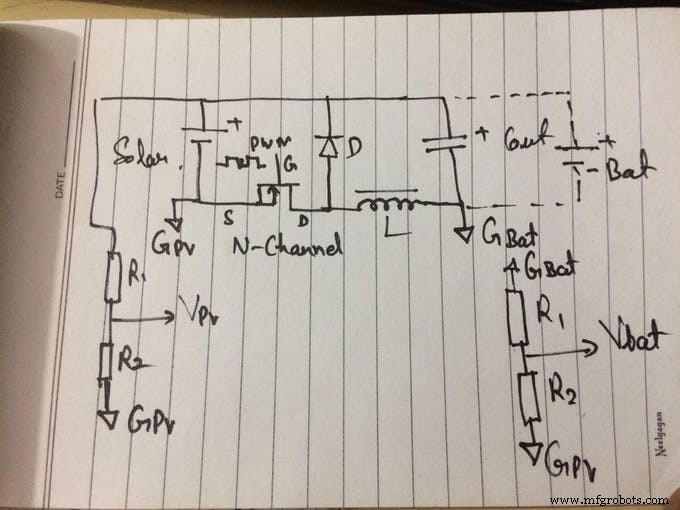 DATE
Solar
+
PWM
G
D
+
Cout
+
- Bat
S
D
L
GPV
N-Channel
GBat
GBat
R1
VPV
R2
GPV
R1
Vbat
R2
GPV
Neelgagan
www.mfgrobots.com